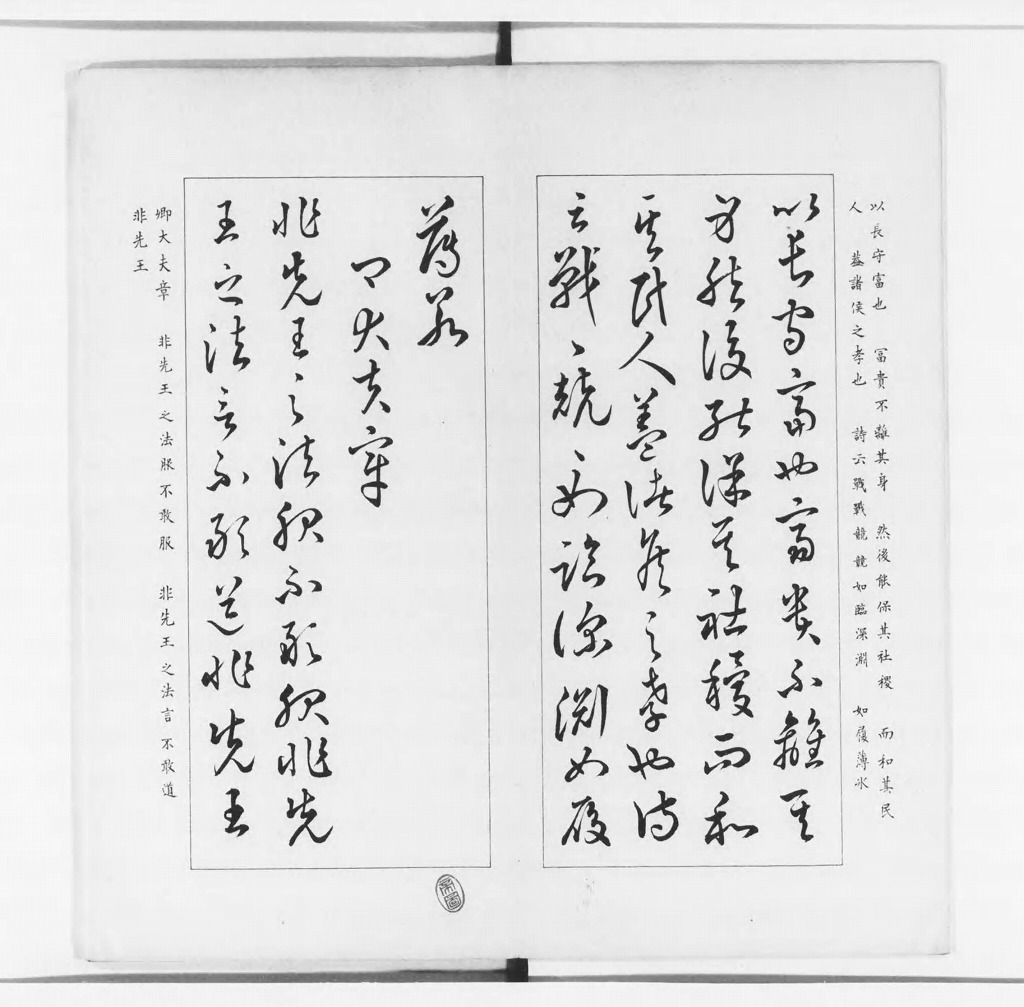 以長守富也　冨貴不離其身　然後能保其社稷　而和其民
人　蓋諸侯之孝也　詩云戰戰兢兢如臨深淵　如履薄冰
以長守富也富貴不離其
身然後能保其社稷而和
其民人蓋諸侯之孝也詩
云戰〻兢〻如臨深淵如履
薄冰
卿大夫章
非先王之法服不敢服非先
王之法言不敢道非先王
卿大夫章　非先王之法服不敢服　非先王之法言不敢道
非先王